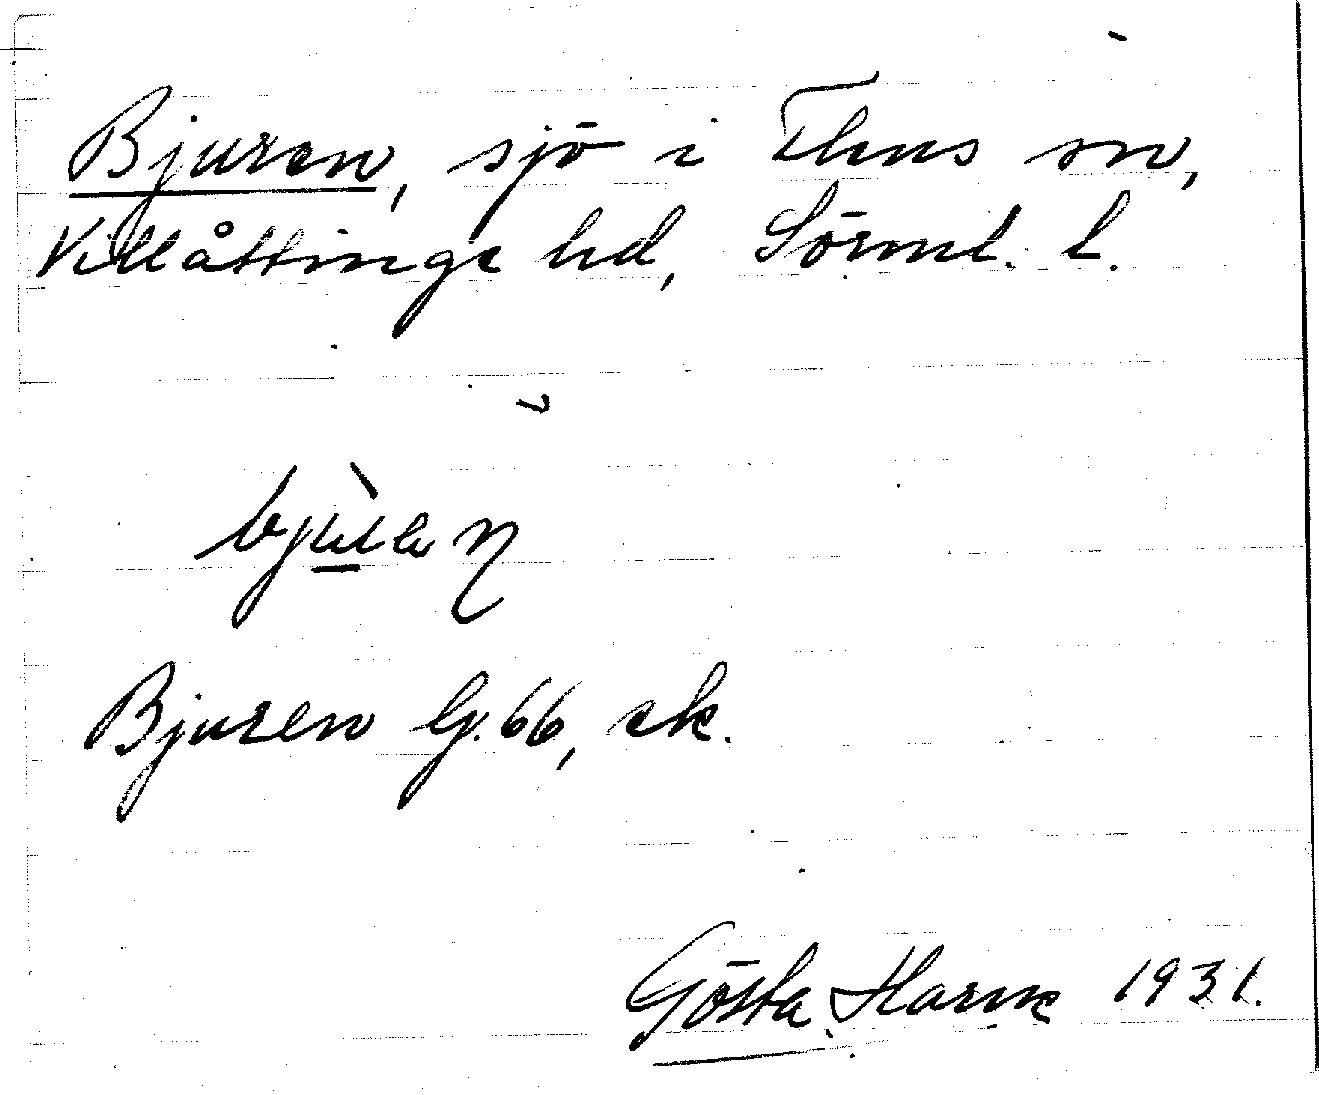 Bjuren, sjö i Flens sn,
Villåttinge hd, Sörml. l.
Bjuren G. 66, ek.
Gösta Harne 1931.